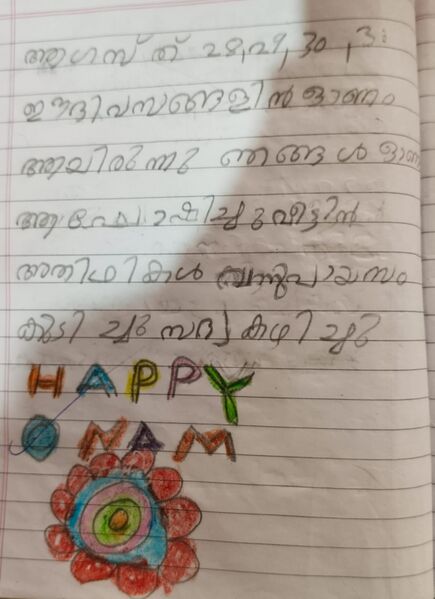 ആഗസ്ത് 28,29,30,3
ഈദിവസങ്ങളിൽ ഓണം
ആയിരുന്നു ഞങ്ങൾ ഓണ
ആഘോഷിച്ചു വീട്ടിൽ
അതിഥികൾ വന്നു പായസം
കുടിച്ചു സദ്യ കഴിച്ചു
HAPPY
ONAM